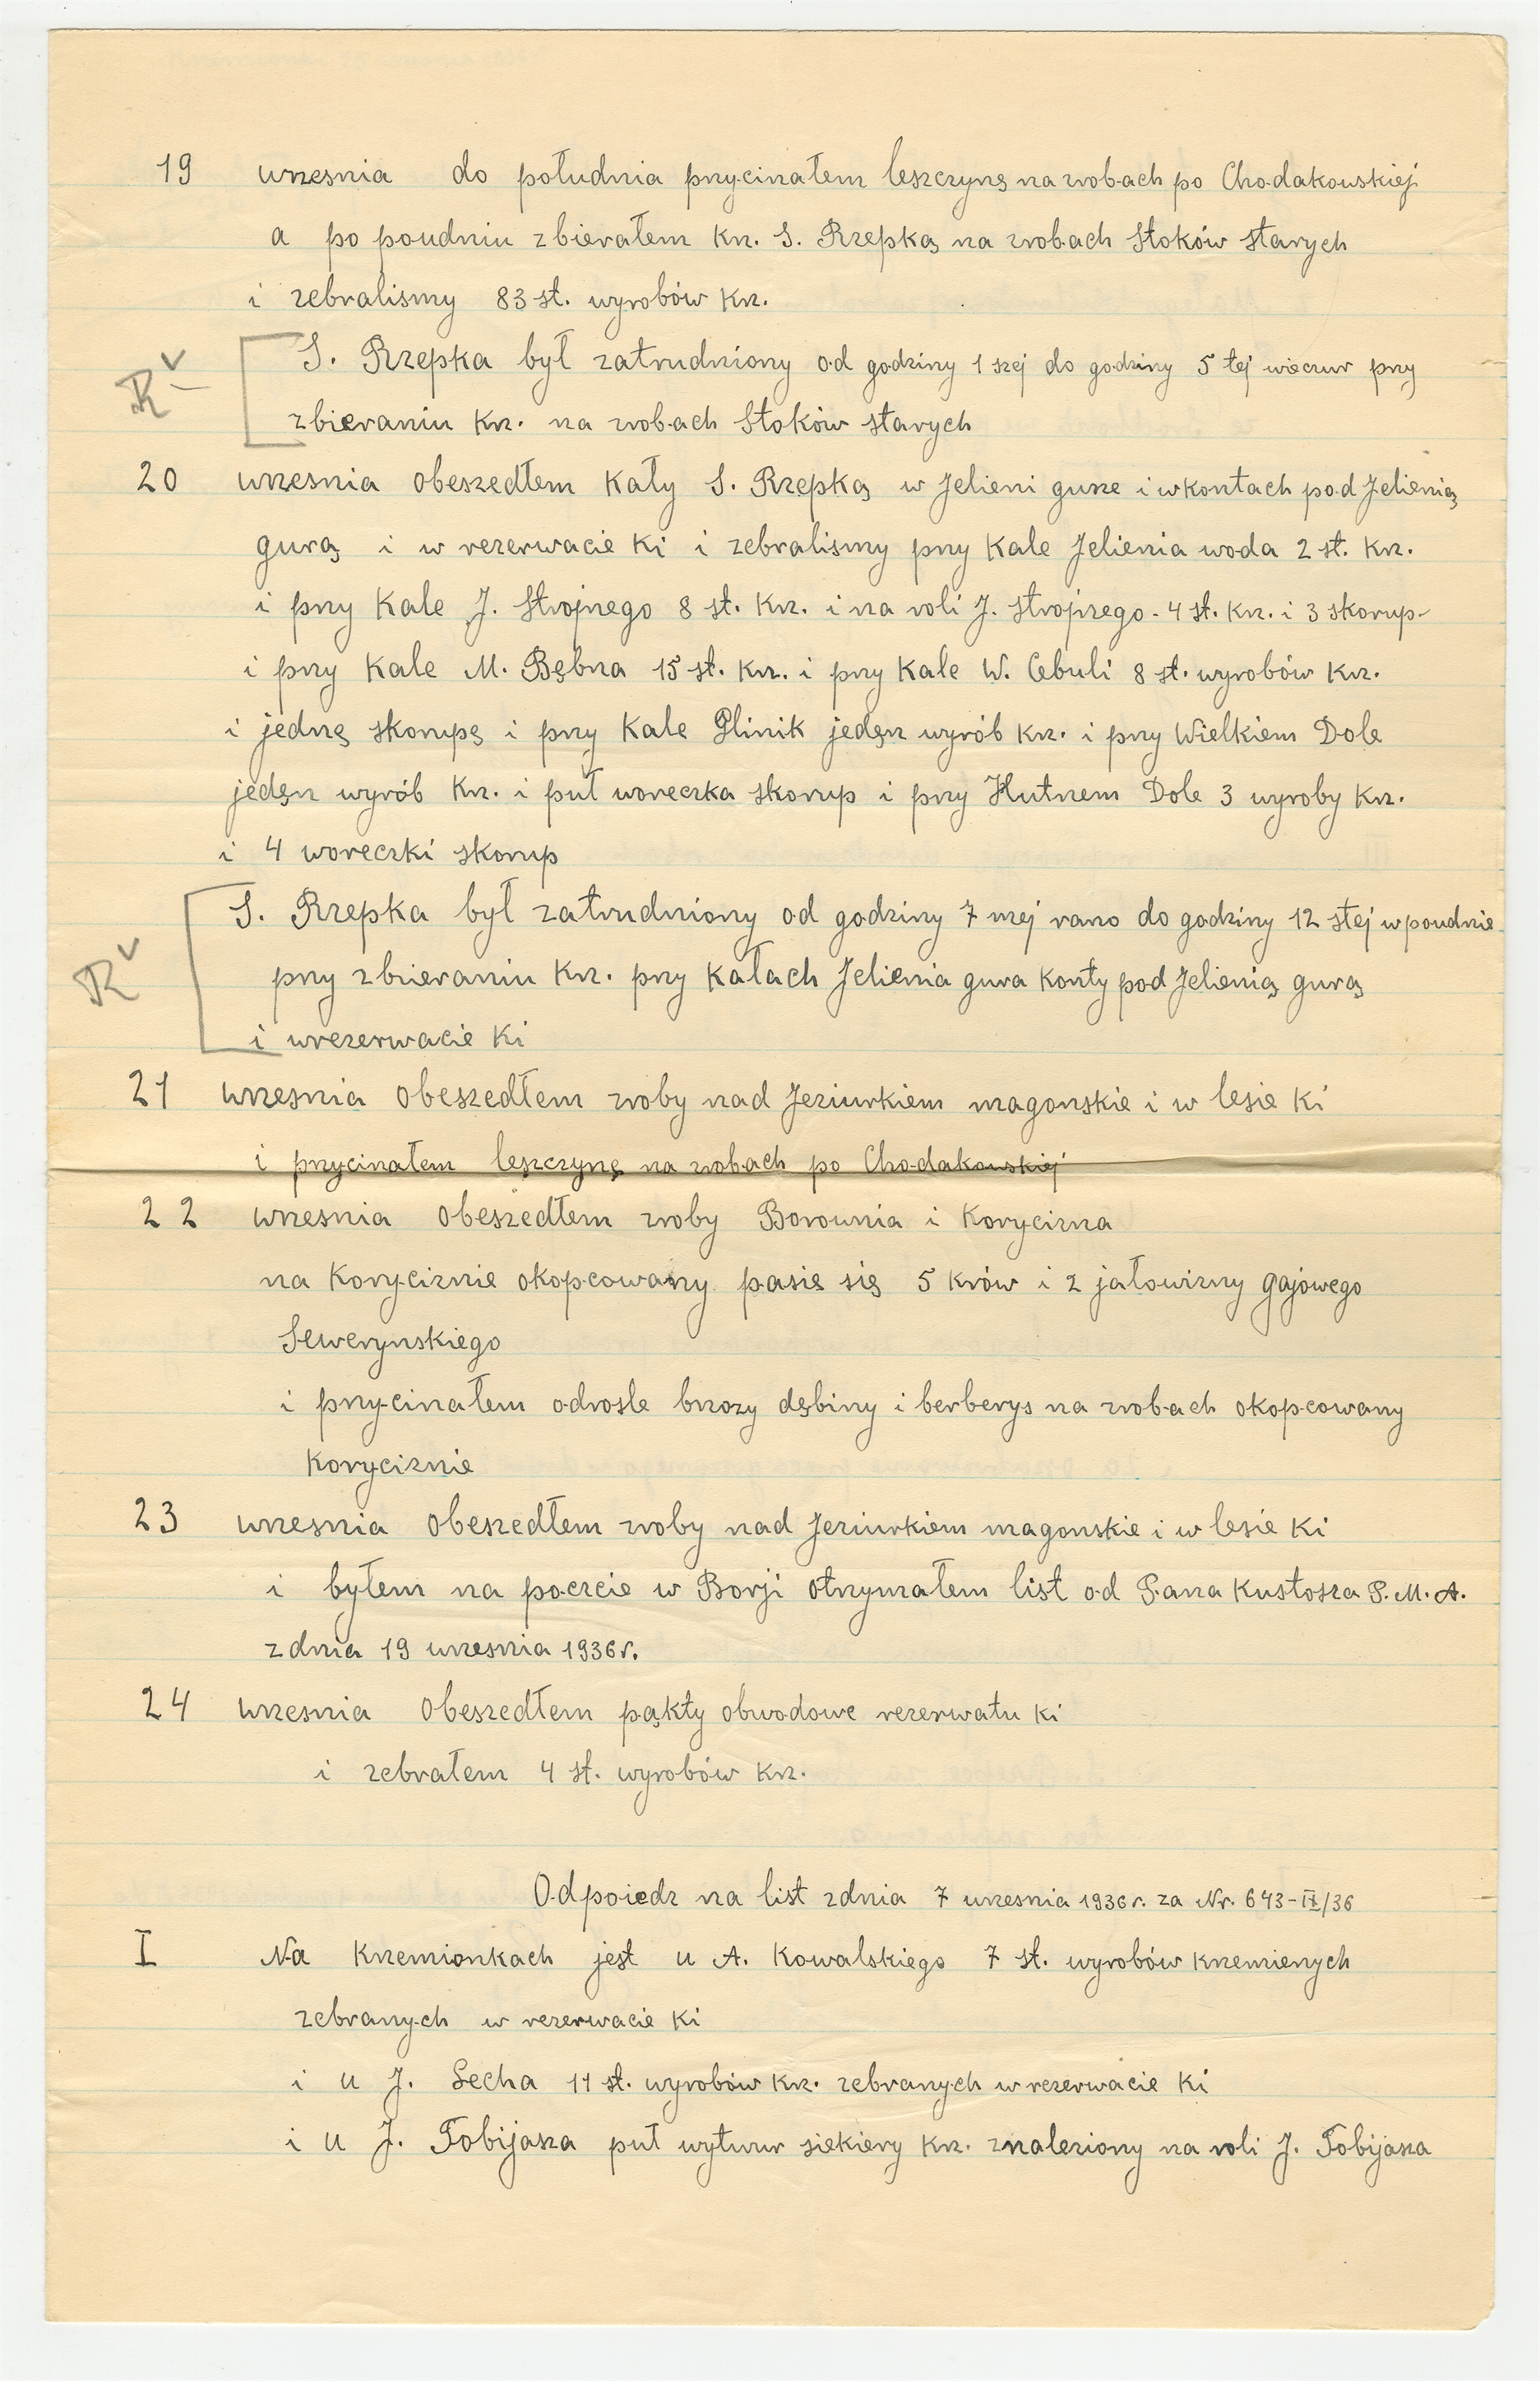 19 wrzesnia do południa przycinałem leszczynę na zrobach po Chodakowskiej
a po poudniu zbierałem Krz. S. Rzepką na zrobach Stoków starych
i zebralismy 83 st. wyrobów Krz.
R v S. Rzepka był zatrudniony od godziny 1 szej do godziny 5 tej wieczur przy
zbieraniu Krz. na zrobach Stoków starych
20 wrzesnia obeszedłem Kały S. Rzepką w Jelieni gurze i w kontach pod Jelienią
gurą i w rezerwacie Ki i zebralismy przy Kale Jelienia woda 2 st. Krz.
i przy Kale J. Strojnego 8 st. Krz. i na roli J. Strojnego - 4 st. Krz. i 3 skorup-
i przy Kale M. Bębna 15 st. Krz. i przy Kale W. Cebuli 8 st. wyrobów Krz.
i jednę skorupę i przy Kale Glinik jedęn wyrób Krz. i przy Wielkiem Dole
jedęn wyrób Krz. i puł woreczka skorup i przy Hutnem Dole 3 wyroby Krz.
i 4 woreczki skorup
R v S. Rzepka był zatrudniony od godziny 7 mej rano do godziny 12 stej w poudnie
przy zbieraniu Krz. przy Kałach Jelienia gura Konty pod Jelienią gurą
i wrezerwacie Ki
21 wrzesnia obeszedłem zroby nad Jeziurkiem magonskie i w lesie Ki
i przycinałem leszczynę na zrobach po Chodakowskiej
22 wrzesnia obeszedłem zroby Borownia i Korycizna
na Koryciznie okopcowany pasie się 5 Krów i 2 jałowizny gajowego
Sewerynskiego
i przycinałem odrosle brzozy dębiny i berberys na zrobach okopcowany
Koryciznie
23 wrzesnia obeszedłem zroby nad Jeziurkiem magonskie i w lesie Ki
i byłem na poczcie w Borji otrzymałem list od Pana Kustosza P. M. A.
z dnia 19 wrzesnia 1936 r.
24 wrzesnia obeszedłem pąkty obwodowe rezerwatu Ki
i zebrałem 4 st. wyrobów Krz.
Odpoiedz na list zdnia 7 wrzesnia 1936 r. za Nr. 643-IX/36
I Na Krzemionkach jest u A. Kowalskiego 7 st. wyrobów Krzemienych
zebranych w rezerwacie Ki
i u J. Lecha 11 st. wyrobów Krz. zebranych w rezerwacie Ki
i u J. Tobijasza puł wytwur siekiery Krz. znaleziony na roli J. Tobijasza